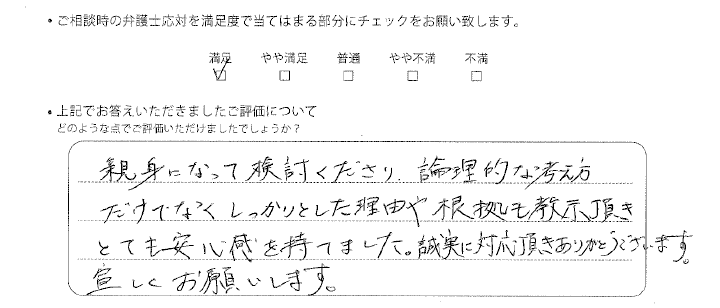 ・ご相談時の弁護士応対を満足度で当てはまる部分にチェックをお願い致します。
満足 やや満足 普通 やや不満 不満
・上記でお答えいただきましたご評価について
どのような点でご評価いただけましたでしょうか？
親身になって検討くださり、論理的な考え方
だけでなくしっかりとした理由や根拠も教示頂き
とても安心感を持てました。誠実に対応頂きありがとうございます。
宜しくお願いします。